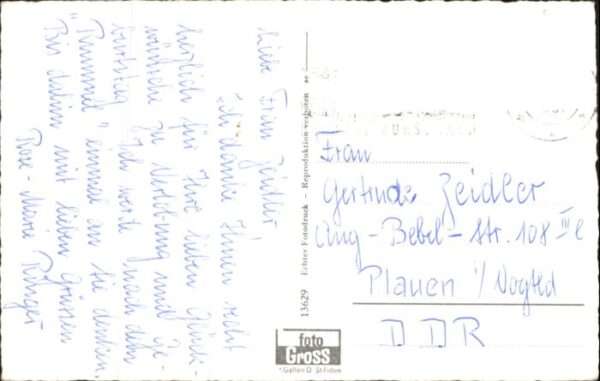 Liebe Frau Zeidler
Ich danke Ihnen recht
herzlich für Ihre lieben Glück-
wünsche zu Verlobung und Ge-
burtstag. Ich werde nach dem
"Rummel" einmal an Sie denken.
Bis dahin mit lieben Grüssen
Rose-Marie
13629 Echter Fotodruck - Reproduktion verboten
foto
GROSS
St. Gallen
Frau
Gertrude Zeidler
Aug-Bebel-Str. 108 III l
Plauen i/Vogtld
DDR